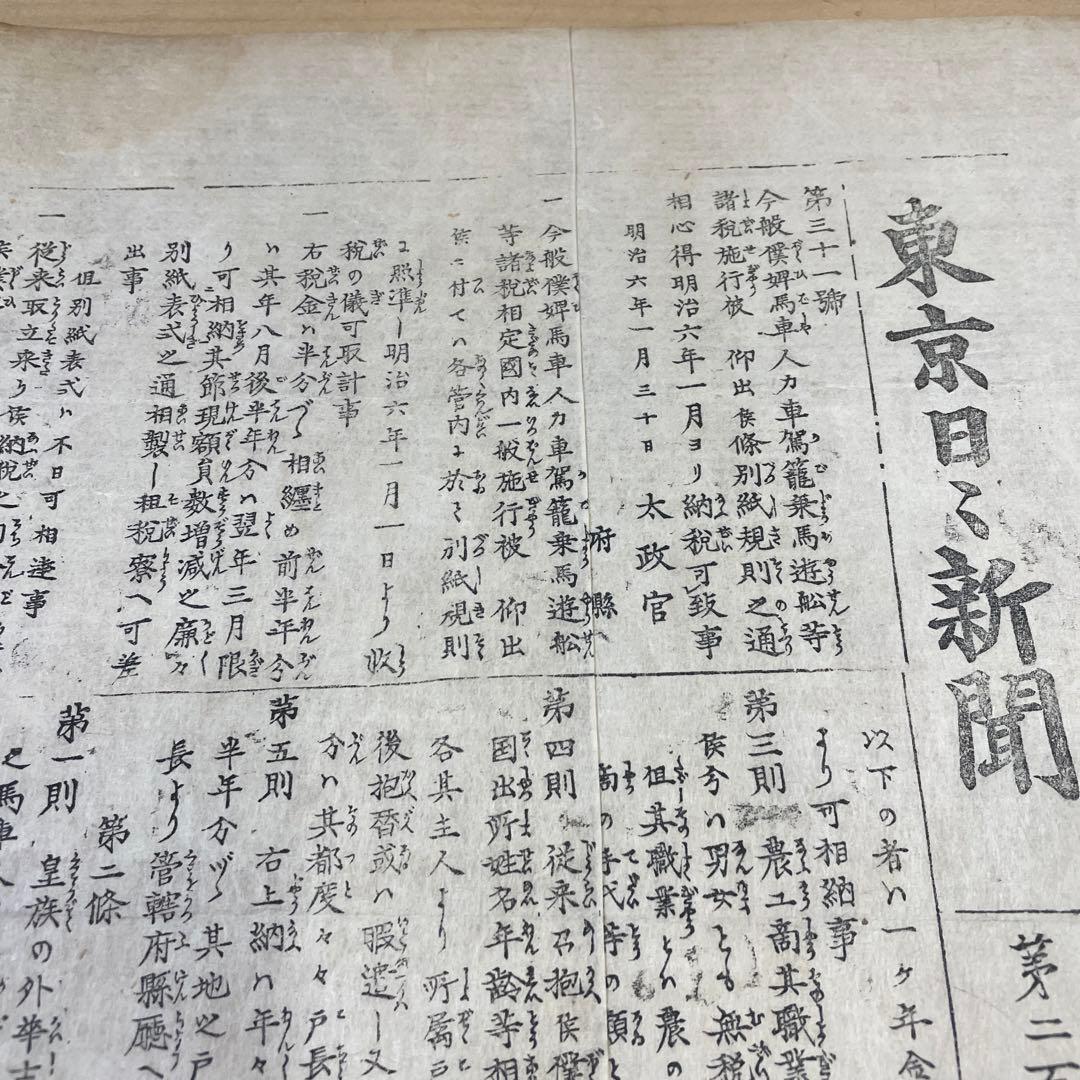 東京日々新聞
第二
第三十一號
今般僕婢馬車人力車駕籠乗馬遊船等
諸税施行被 仰出候條別紙規則之通
相心得明治六年一月ヨリ納税可致事
明治六年一月三十日 太政官
府縣
一 今般僕婢馬車人力車駕籠乗馬遊船
等諸税相定國内一般施行被 仰出
候ニ付てハ各管内に於て別紙規則
に照準し明治六年一月一日より収
税の儀可取計事
一 右税金ハ半分づゝ相纏め前半年分
ハ其年八月後半年分ハ翌年三月限
り可相納其節現額員数増減之廉々
別紙表式之通相製し租税寮へ可差
出事
但別紙表式ハ不日可相達事
一 従来取立来り候納税之
以下の者ハ一ヶ年金
より可相納事
第三則 農工商其職業
候分ハ男女とも無税
但其職業とハ農の
商の手代等の類と
第四則 従来召抱候僕
国出所姓名年齢等相
各其主人より所属戸
後抱替或ハ暇遣し又
分ハ其都度々々戸長
第五則 右上納ハ年々
半年分ヅヽ其地之戸
長より管轄府縣廳へ
第二條
第一則 皇族の外華士
之馬車